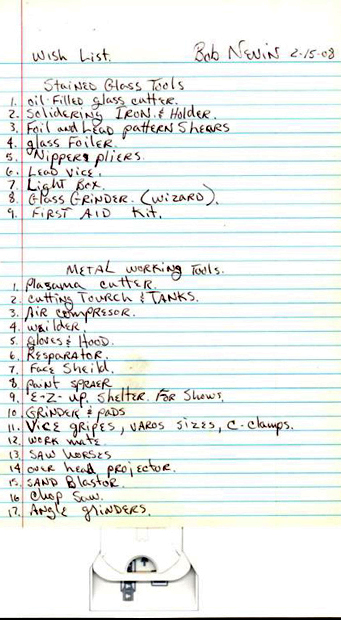 Wish List. Bob Nevin 2-15-08
Stained Glass Tools
1. oil Filled glass cutter.
2. Solidering Iron & Holder.
3. Foil and Lead pattern Shears
4. glass Foiler.
5. Nippers pliers.
6. Lead vice.
7. Light Box.
8. Glass Grinder. (Wizard).
9. First Aid Kit.
Metal Working Tools.
1. Plasama cutter.
2. cutting Tourch & Tanks.
3. Air compresor.
4. wailder.
5. Gloves & Hood.
6. Resparator.
7. Face Sheild.
8 paint spraer
9. E-Z-up. Shelter. For Shows.
10. Grinder & pads
11. Vice gripes, varos sizes, C-clamps.
12. work mate.
13 Saw horses
14 over head projector.
15. Sand Blastor.
16 Chop Saw.
17. Angle grinders.